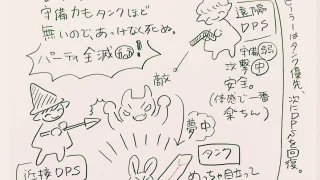 守備力もタンクほど
無いので、あっけなく死ぬ。
パーティ全滅
遠隔
DPS
守備 弱
攻撃 中
安全。
(体感で一番
楽ちん)
ヒーラーはタンク優先、次にDPSを回復。
敵
夢中
近接DPS
タンク
めっちゃ目立って